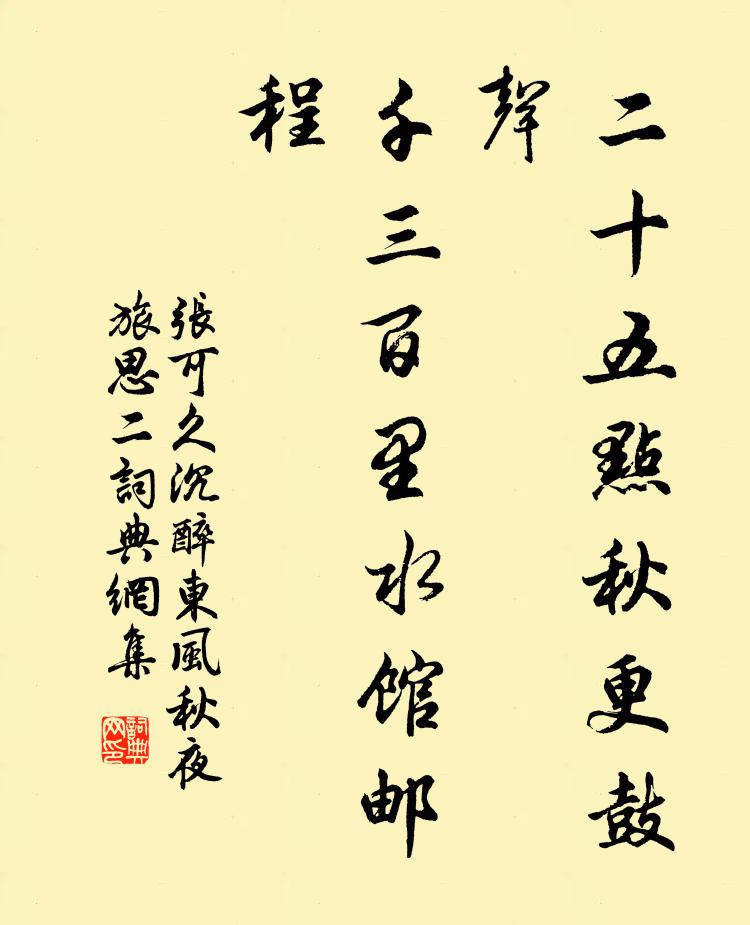 二十五點秋更鼓
聲
千三百里水館邮
程
張可久沉醉東風秋夜
旅思二詞典網集
詞典网印